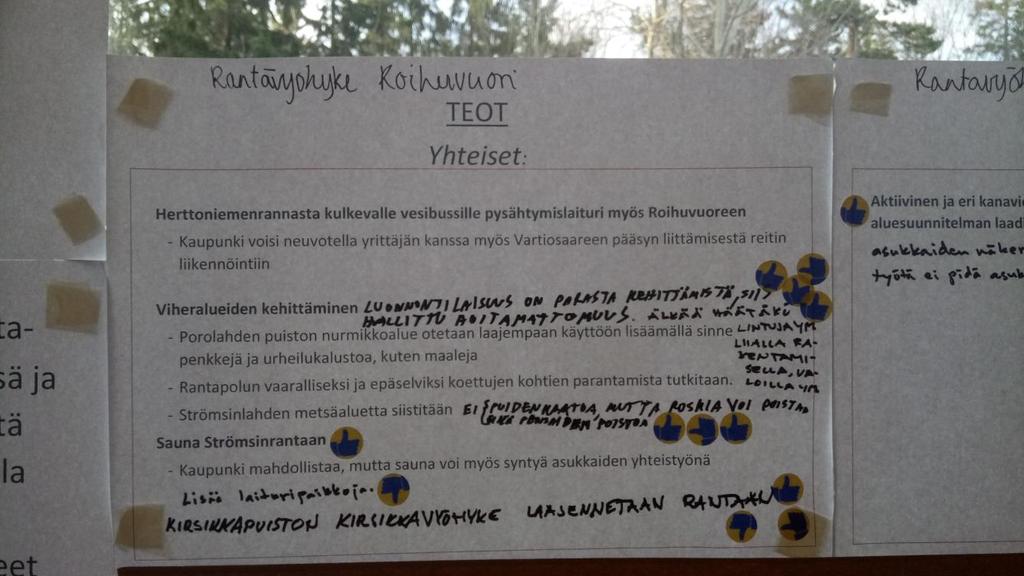 Rantavyöhyke Roihuvuori
TEOT
Yhteiset:
Herttoniemenrannasta kulkevalle vesibussille pysähtymislaituri myös Roihuvuoreen
- Kaupunki voisi neuvotella yrittäjän kanssa myös Vartiosaareen pääsyn liittämisestä reitin
liikennöintiin
Viheralueiden kehittäminen LUONNONTILAISUUS ON PARASTA KEHITTÄMISTÄ, SIIS
HALLITTU HOITAMATTOMUUS. ÄLKÄÄ HÄÄTÄKÖ
LINTUJA YM
LIIALLA RA-
KENTAMI-
SELLA, VA-
LOILLA YM
- Porolahden puiston nurmikkoalue otetaan laajempaan käyttöön lisäämällä sinne
penkkejä ja urheilukalustoa, kuten maaleja
- Rantapolun vaaralliseksi ja epäselviksi koettujen kohtien parantamista tutkitaan.
- Strömsinlahden metsäaluetta siistitään EI PUIDENKAATOA, MUTTA ROSKIA VOI POISTAA
EIKÄ PENSAIDEN POISTOA
Sauna Strömsinrantaan
- Kaupunki mahdollistaa, mutta sauna voi myös syntyä asukkaiden yhteistyönä
Lisää laituripaikkoja.
KIRSIKKAPUISTON KIRSIKKAVYÖHYKE LAAJENNETAAN RANTAAN
Rantavyö
Aktiivinen ja eri kanavi
aluesuunnitelman laad
asukkaiden näke
työtä ei pidä asu
ta-
sä ja
tä
la
eet